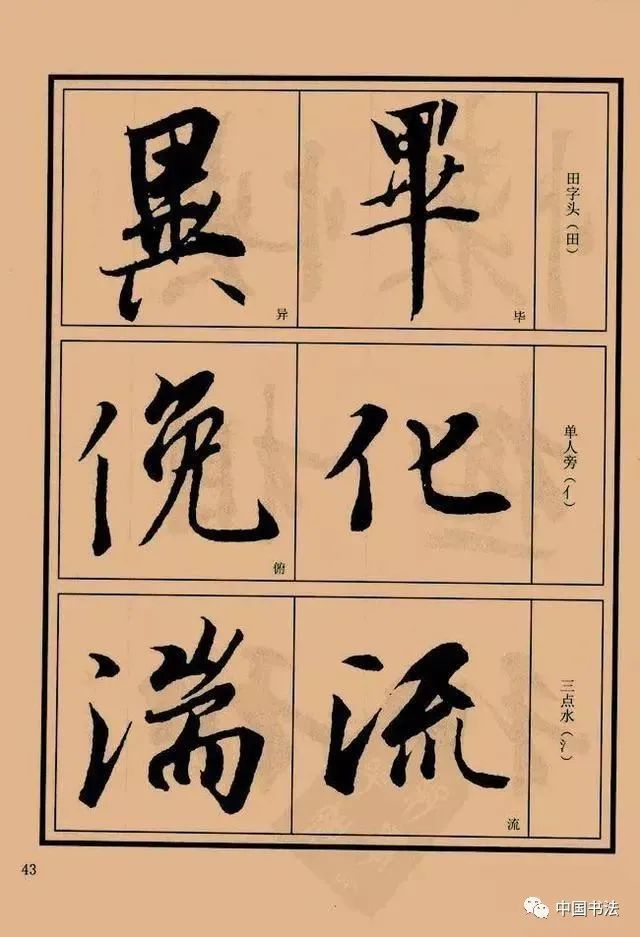 田字头（田）
畢
毕
異
异
单人旁（亻）
化
俛
俯
三点水（氵）
流
流
湍
43
中国书法